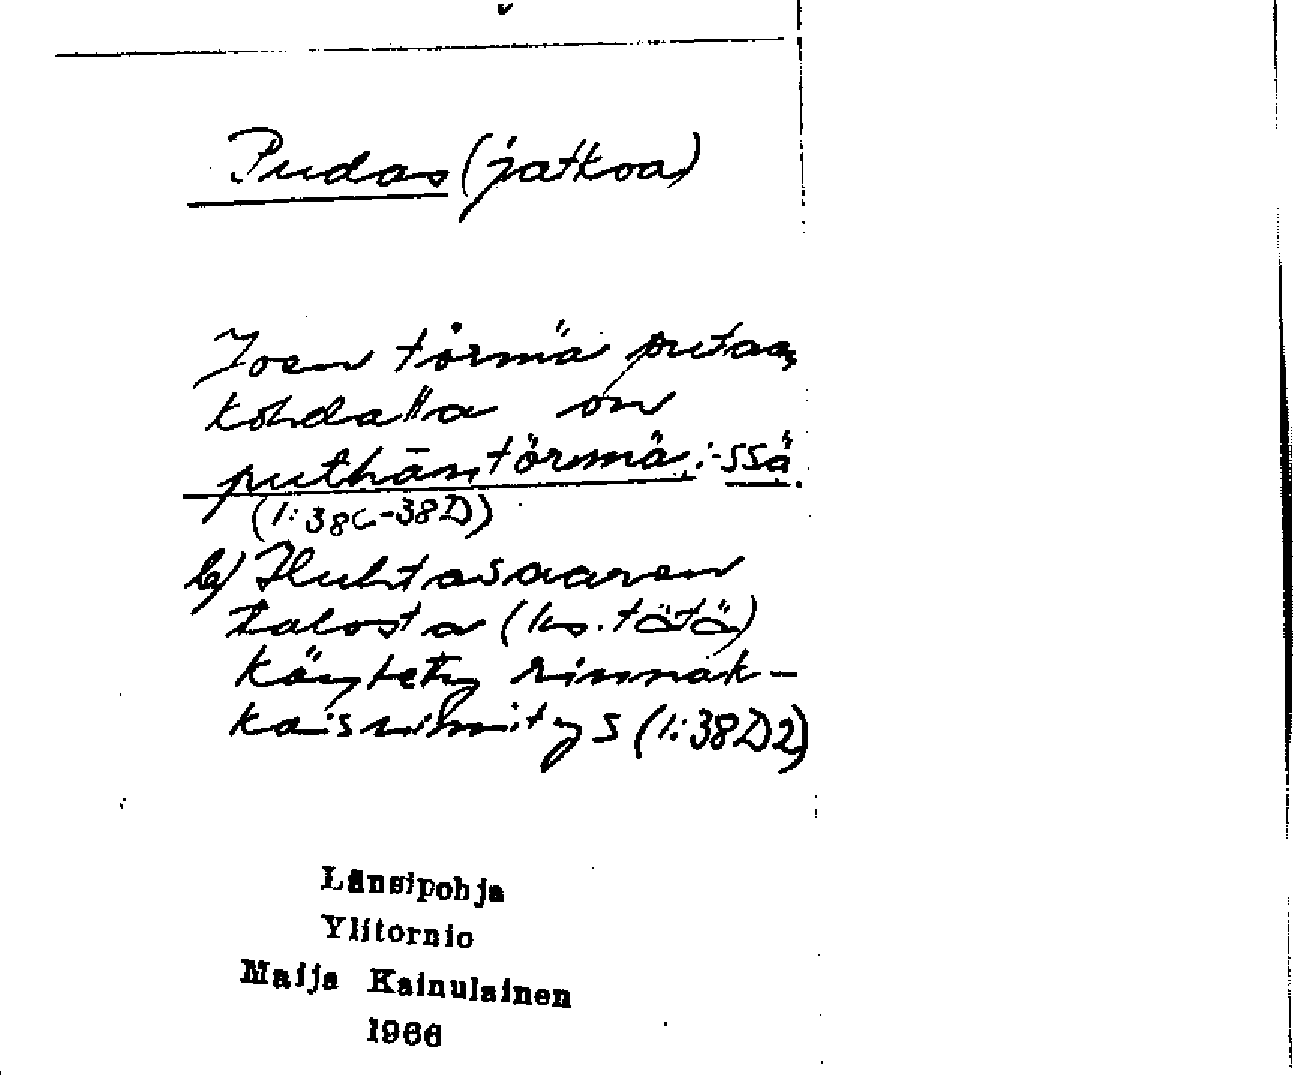 Pudas (jatkoa)
Joen törmä putaan
kohdalla on
puthāntörmä, :-ssä.
(1:38C-38D)
b) Huhtasaaren
talosta (ks. tätä)
käytetty rinnak-
kaisnimitys (1:38D2)
Länsipohja
Ylitornio
Maija Kainulainen
1966